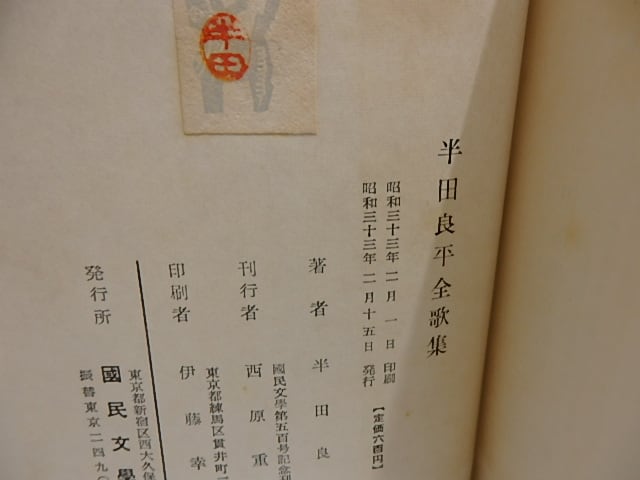 半田良平全歌集
昭和三十三年二月一日 印刷
昭和三十三年二月十五日 発行
【定価六百円】
著者 半田良
國民文學第五百号記念刊
刊行者 西原重
東京都練馬区貫井町一
印刷者 伊藤幸
発行所
東京都新宿区西大久保
國民文學
振替東京二四九
半田